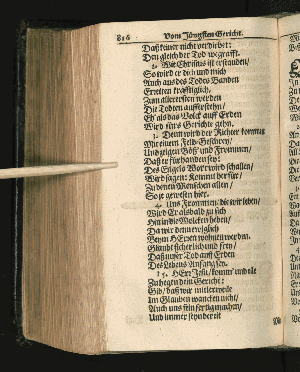 816 Vom Jüngsten Gericht.
Daß keiner nicht verdirbet:
Den gleich der Tod wegrafft.
2. Wie Christus ist erstanden/
So wird er dich und mich
Auch aus des Todes Banden
Erretten kräfftiglich,
Zum allerersten werden
Die Todten auferstehn/
Eh' als das Volck auff Erden
Wird fürs Gerichte gehn.
3. Denn wird der Richter kommen
Mit einem Feld-Geschrey/
Und zeigen Böß und Frommen/
Daß er fürhanden sey:
Des Engels Wort wird schallen/
Wird sagen: Kommt herfür/
Zu denen Menschen allen/
So je gewesen hier.
4. Uns Frommen/die wir leben/
Wird Er alsbald zu sich
Hin in die Wolcken heben/
Da wir denn ewiglich
Beym HErren wohnen werden.
Glaubt sicherlich und frey/
Daß unser Tod auff Erden
Des Lebens Anfang sey.
15. HErr Jesu/ komm' und eile
Zu hegen dein Gericht:
Gib/ daß wir mitlerweile
Im Glauben wancken nicht/
Auch uns fein fertig machen/
Und immer seyn bereit